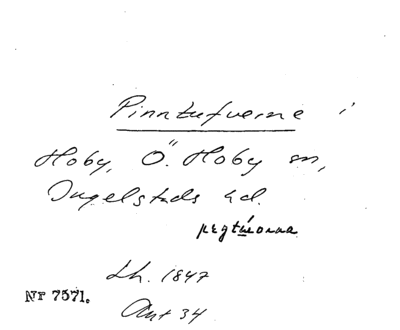 Pinntufverne i
Hoby, Ö. Hoby sn,
Ingelstads hd.
Lh. 1847
Nr 7571.
Ant 34